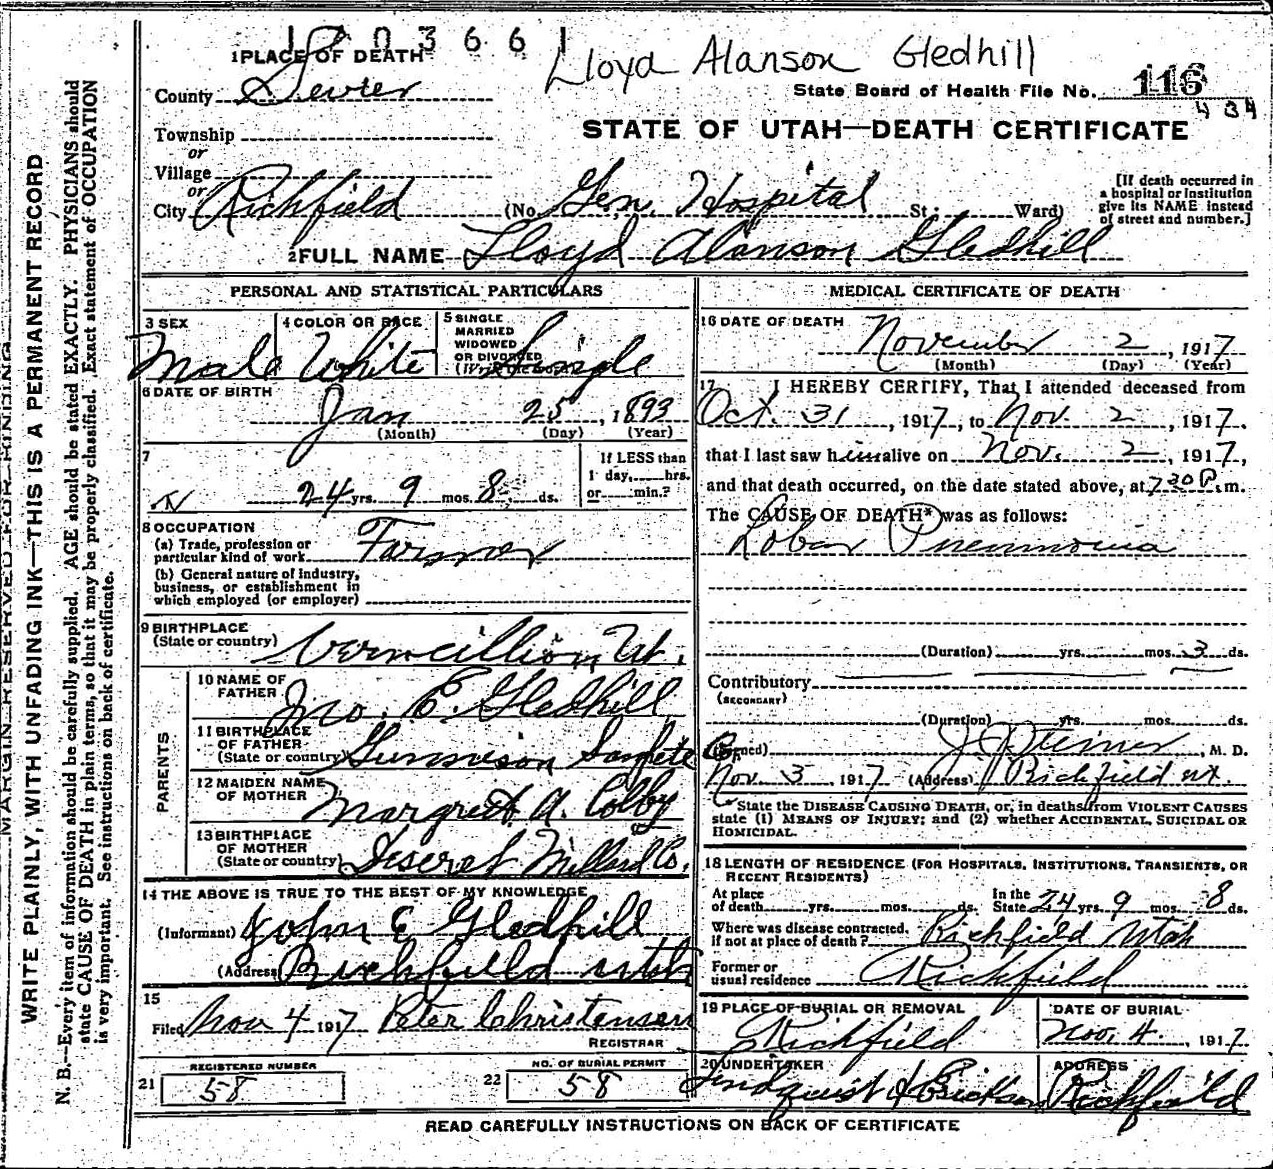 1 PLACE OF DEATH
Lloyd Alanson Gledhill
County Sevier
State Board of Health File No. 116
434
Township
STATE OF UTAH—DEATH CERTIFICATE
or
Village
or
City Richfield (No. Gen. Hospital St.; Ward)
[If death occurred in a hospital or institution give its NAME instead of street and number.]
2 FULL NAME Lloyd Alanson Gledhill
PERSONAL AND STATISTICAL PARTICULARS
3 SEX Male
4 COLOR OR RACE White
5 SINGLE MARRIED WIDOWED OR DIVORCED Single
6 DATE OF BIRTH Jan 25, 1893
(Month) (Day) (Year)
7 24 yrs. 9 mos. 8 ds.
If LESS than 1 day, hrs. or min.?
8 OCCUPATION
(a) Trade, profession or particular kind of work Farmer
(b) General nature of industry, business, or establishment in which employed (or employer)
9 BIRTHPLACE
(State or country) Vermillion, Ut.
PARENTS
10 NAME OF FATHER Jno. E. Gledhill
11 BIRTHPLACE OF FATHER (State or country) Gunnison Sanpete Co.
12 MAIDEN NAME OF MOTHER Margret A. Colby
13 BIRTHPLACE OF MOTHER (State or country) Deseret Millard Co.
14 THE ABOVE IS TRUE TO THE BEST OF MY KNOWLEDGE
(Informant) John E Gledhill
(Address) Richfield Utah
15
Filed Nov 4 1917 Peter Christensen
REGISTRAR
21 REGISTERED NUMBER 58
22 NO. OF BURIAL PERMIT 58
MEDICAL CERTIFICATE OF DEATH
16 DATE OF DEATH
November 2, 1917
(Month) (Day) (Year)
17 I HEREBY CERTIFY, That I attended deceased from
Oct. 31, 1917, to Nov. 2, 1917.
that I last saw him alive on Nov. 2, 1917,
and that death occurred, on the date stated above, at 7 30 P. m.
The CAUSE OF DEATH* was as follows:
Lobar Pneumonia
(Duration) yrs. mos. 3 ds.
Contributory
(SECONDARY)
(Duration) yrs. mos. ds.
(Signed) M. D.
Nov. 3, 1917 (Address) Richfield Ut.
*State the DISEASE CAUSING DEATH, or, in deaths from VIOLENT CAUSES
state (1) MEANS OF INJURY; and (2) whether ACCIDENTAL, SUICIDAL OR
HOMICIDAL.
18 LENGTH OF RESIDENCE (FOR HOSPITALS, INSTITUTIONS, TRANSIENTS, OR
RECENT RESIDENTS)
At place of death yrs. mos. ds. In the State 24 yrs. 9 mos. 8 ds.
Where was disease contracted, if not at place of death? Richfield Utah
Former or usual residence Richfield
19 PLACE OF BURIAL OR REMOVAL Richfield
DATE OF BURIAL Nov. 4, 1917
20 UNDERTAKER
ADDRESS Richfield
READ CAREFULLY INSTRUCTIONS ON BACK OF CERTIFICATE
MARGIN RESERVED FOR BINDING
WRITE PLAINLY, WITH UNFADING INK—THIS IS A PERMANENT RECORD
N. B.—Every item of information should be carefully supplied. AGE should be stated EXACTLY. PHYSICIANS should
state CAUSE OF DEATH in plain terms, so that it may be properly classified. Exact statement of OCCUPATION
is very important. See instructions on back of certificate.